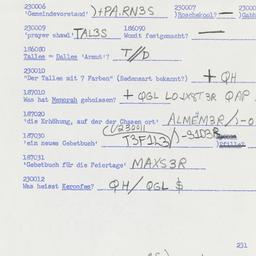 230006 230007 2300
'Gemeindevorstand' )+PA.RN3S )Roschekool? — )Gabb
230009 186090
'prayer shawl' TAL3S Womit festgemacht? —
186080
Talles = Dalles 'Armut'? T/D
230010
"Der Talles mit 7 Farben" (Redensart bekannt?) + QH
187010
Was hat Menorah geheissen? + QGL
187020
'die Erhöhung, auf der der Chasen ort' ALMEM3R/
187030 (230011
'ein neues Gebetbuch' T3F1L3/
187031
'Gebetbuch für die Feiertage' MAXS3R
230012
Was heisst Keroofes? QH/QGL $
231